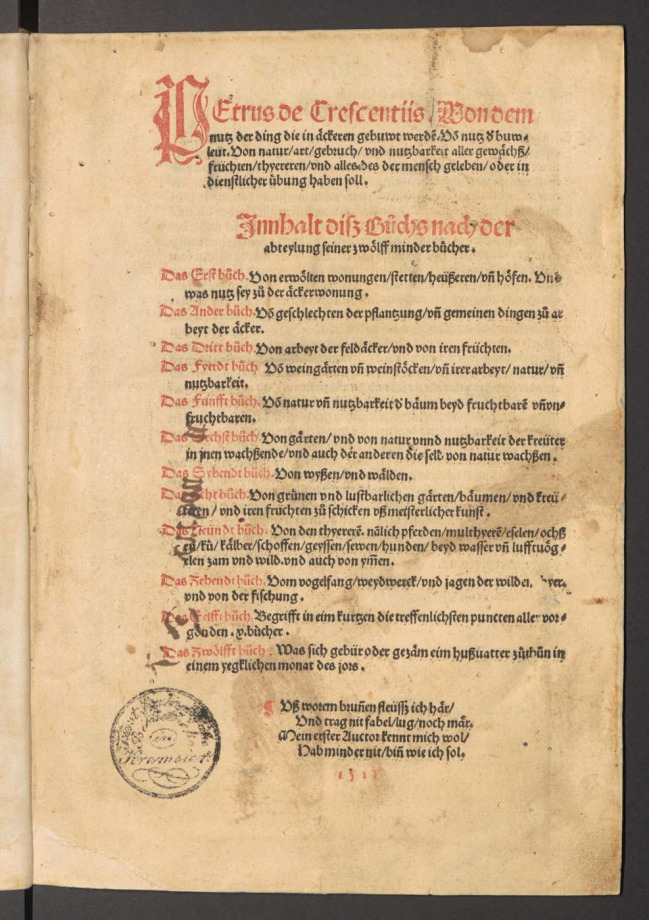 PEtrus de Crescentiis / Von dem
nutz der ding die in åckeren gebuwt werdẽ. Võ nutz d̓ buw⸗
leüt. Von natur / art / gebruch / vnd nutzbarkeit aller gewåchß /
früchten / thyereren / vnd alles des der mensch geleben / oder in
dienstlicher übung haben soll.
Jnnhalt disz Bůchs nach der
abteylung seiner zwölff minder bücher.
Das Erst bůch. Von erwölten wonungen / stetten / heüßeren / vñ höfen. Vnd
was nutz sey zů der åckerwonung.
Das Ander bůch. Võ geschlechten der pflantzung / vñ gemeinen dingen zů ar
beyt der åcker.
Das Dritt bůch. Von arbeyt der feldåcker / vnd von iren früchten.
Das Fyerdt bůch. Võ weingårten vñ weinstöcken / vñ irer arbeyt / natur / vñ
nutzbarkeit.
Das Fünfft bůch. Võ natur vñ nutzbarkeit d̓ båum beyd fruchtbarẽ vñ vn⸗
fruchtbaren.
Das Sechst bůch. Von gårten / vnd von natur vnnd nutzbarkeit der kreüter
in jnen wachßende / vnd auch der anderen die selb von natur wachßen.
Das Sybendt bůch. Von wyßen / vnd wålden.
Das Acht bůch. Von grůnen vnd lustbarlichen gårten / båumen / vnd kreü⸗
teren / vnd iren früchten zů schicken vß meisterlicher kunst.
Das Neündt bůch. Von den thyererẽ. nålich pferden / multhyerẽ / eselen / ochß
en / ků / kålber / schoffen / geyssen / sewen / hunden / beyd wasser vñ lufftuög⸗
elen zam vnd wild. vnd auch von ym̃en.
Das Zehendt bůch. Vom vogelfang / weydwerck / vnd jagen der wilden thyer.
vnd von der fischung.
Das Eelfft bůch. Begrifft in eim kurtzen die treffenlichsten puncten aller vor⸗
gonden .x. bücher.
Das Zwölfft bůch. Was sich gebür oder gezåm eim hußuatter zůthůn in
einem yegklichen monat des jors.
¶ Vß worem bruñen fleüssz ich hår /
Vnd trag nit fabel / lug / noch mår.
Mein erster Auctor kennt mich wol /
Hab minder nit / biñ wie ich sol.